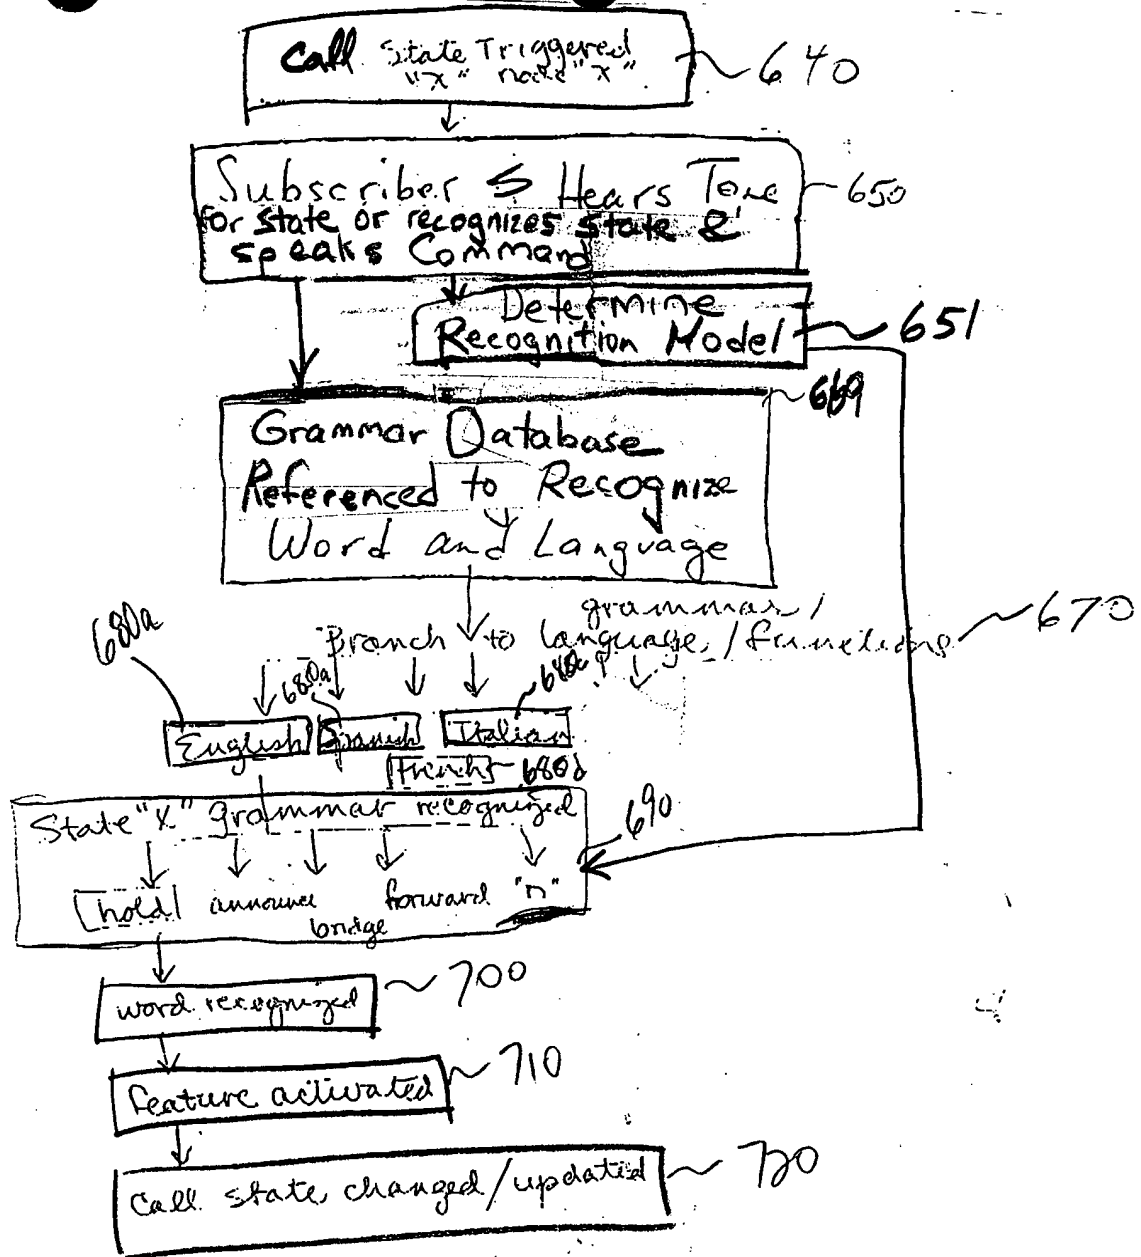 Call State Triggered
"X" node "X"
640
Subscriber S Hears Tone
for state or recognizes state &
speaks Command
650
Determine
Recognition Model
651
669
Grammar Database
Referenced to Recognize
Word and Language
grammar/
Branch to language/functions
670
680a
680a
680c
English
Spanish
Italian
French
680d
State "X" grammar recognized
690
hold
announce
bridge
forward
"n"
word recognized
700
feature activated
710
Call state changed/updated
720